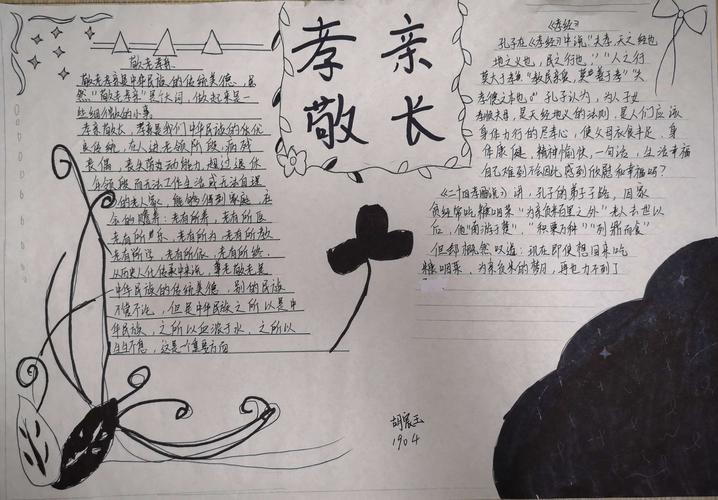 孝亲
敬长
敬老孝亲
敬老孝亲是中华民族的传统美德，虽
然"敬老孝亲"是个大词，做起来是一
些细微的小事。
孝亲敬长，孝亲是我们中华民族的优
良传统，在人进老领阶段，病残
丧偶，丧失劳动能力，超过退休
年领段而无法工作生活或无法自理
的老人家，能够得到家庭，社
会的赡养，老有所养，老有所医
老有所乐，老有所为，老有所教
老有所学，老有所依，老有所终
从历史人化传承中来说，尊老敬老是
中华民族的传统美德，别的民族
不管不论，但是中华民族之所以是中
华民族，之所以血浓于水，之所以
生生不息，这是一个重要方面
《孝经》
孔子在《孝经》中说"夫孝，天之经也
地之义也，民之行也，""人之行
莫大于孝""教民亲爱，莫善于孝""夫
孝德之本也"孔子认为，为人子女
孝顺父母，是天经地义的法则，是人们应该
身体力行的尽孝心，使父母衣食丰足，身
体康健，精神愉快，一句话，生活幸福
自己难到不会因此感到欣慰和幸福吗？
《二十四孝图说》讲，孔子的弟子子路，因家
贫经常吃糠咽菜"为亲负米百里之外"老人去世以
后，他"南游于楚"，"积粟万种""列鼎而食"
但却慨然以道：现在即使想回来吃
糠咽菜，为亲负米的梦月，再也力不到了
胡宸玉
1904